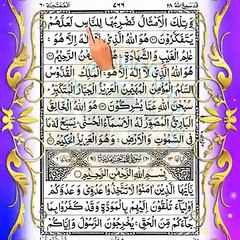 الممتحنة ٦٠
قد سمع الله ٢٨
وَتِلْكَ الْاَمْثَالُ نَضْرِبُهَا لِلنَّاسِ لَعَلَّهُمْ
يَتَفَكَّرُوْنَ هُوَ اللّٰهُ الَّذِيْ لَاۤ اِلٰهَ اِلَّا هُوَ
عٰلِمُ الْغَيْبِ وَالشَّهَادَةِ هُوَ الرَّحْمٰنُ الرَّحِيْمُ
هُوَ اللّٰهُ الَّذِيْ لَاۤ اِلٰهَ اِلَّا هُوَ اَلْمَلِكُ الْقُدُّوْسُ
السَّلٰمُ الْمُؤْمِنُ الْمُهَيْمِنُ الْعَزِيْزُ الْجَبَّارُ الْمُتَكَبِّرُ
سُبْحٰنَ اللّٰهِ عَمَّا يُشْرِكُوْنَ هُوَ اللّٰهُ الْخَالِقُ
الْبَارِئُ الْمُصَوِّرُ لَهُ الْاَسْمَآءُ الْحُسْنٰى يُسَبِّحُ لَهٗ مَا
فِي السَّمٰوٰتِ وَالْاَرْضِ وَهُوَ الْعَزِيْزُ الْحَكِيْمُ
بِسْمِ اللّٰهِ الرَّحْمٰنِ الرَّحِيْمِ
يٰۤاَيُّهَا الَّذِيْنَ اٰمَنُوْا لَا تَتَّخِذُوْا عَدُوِّيْ وَعَدُوَّكُمْ
اَوْلِيَآءَ تُلْقُوْنَ اِلَيْهِمْ بِالْمَوَدَّةِ وَقَدْ كَفَرُوْا بِمَا
جَآءَكُمْ مِّنَ الْحَقِّ يُخْرِجُوْنَ الرَّسُوْلَ وَاِيَّاكُمْ